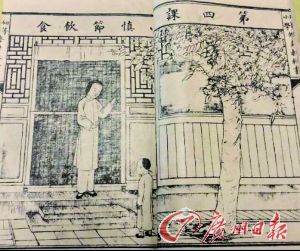 第四課
慎節飲食
廣州日報